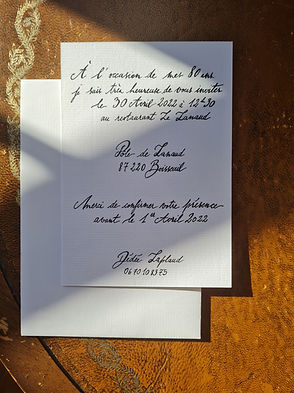 À l'occasion de mes 80 ans
je suis très heureuse de vous inviter
le 30 Avril 2022 à 12h30
au restaurant Le Lanaud
Pôle de Lanaud
87220 Boisseuil
Merci de confirmer votre présence
avant le 1er Avril 2022
Dédée Laplaud